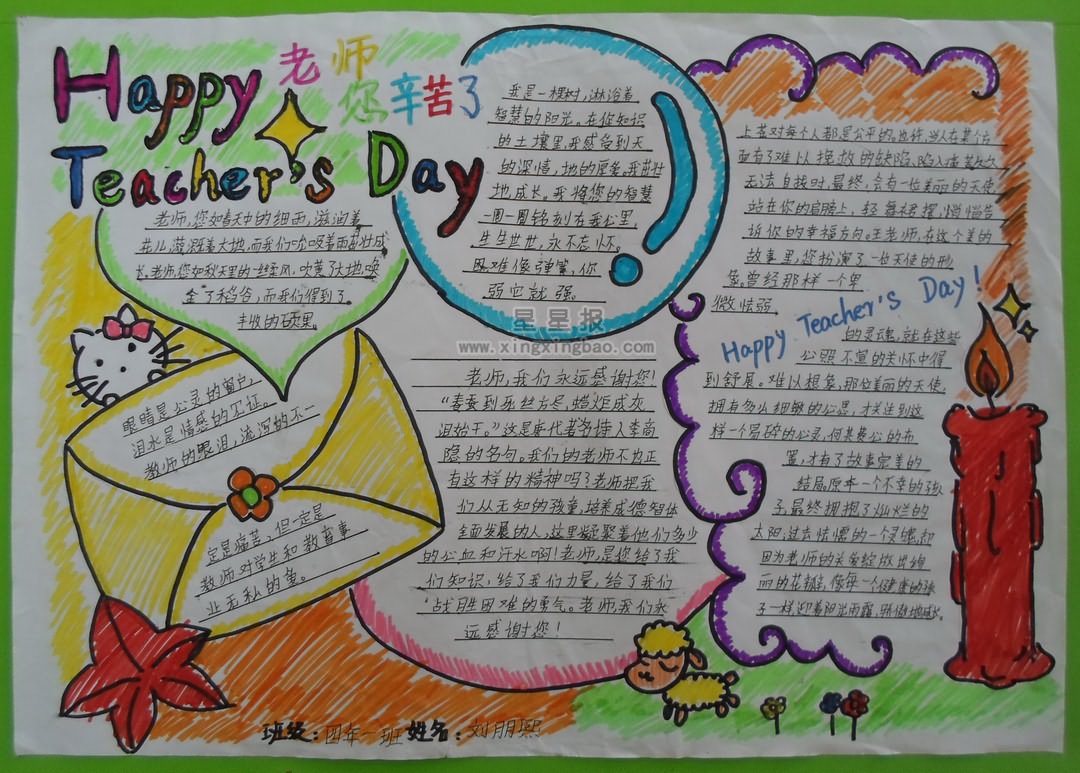 Happy 老师
您辛苦了
Teacher's Day
老师,您如春天中的细雨,滋润着
花儿,灌溉着大地,而我们吮吸着雨茁壮成
长。老师,您如秋天里的一丝凉风,吹黄了大地,唤
金了稻谷,而我们得到了
丰收的硕果。
我是一棵树,淋浴着
智慧的阳光。在你知识
的土壤里,我感受到天
的深情,地的厚爱。我茁壮
地成长。我将您的智慧
一圈一圈铭刻在我心里,
生生世世,永不忘怀。
困难像弹簧,你
弱它就强。
上苍对每个人都是公平的。也许,当人在某个方
面有了难以挽救的缺陷,陷入痛苦久久
无法自拔时,最终,会有一位美丽的天使
站在你的肩膀上,轻舞裙摆,悄悄告
诉你的幸福方向。王老师,在这个美的
故事里,您扮演了一位天使的形
象。曾经那样一个卑
微怯弱
Happy Teacher's Day!
的灵魂,就在这些
心照不宣的关怀中得
到舒展。难以想象,那位美丽的天使,
拥有多么细腻的心思,才关注到这
样一个易碎的心灵,何其费心的布
置,才有了故事完美的
结局。原本一个不幸的孩
子,最终拥抱了灿烂的
太阳,过去怯懦的一个灵魂,却
因为老师的关爱绽放出绚
丽的花瓣,像每一个健康的孩
子一样,迎着阳光雨露,骄傲地成长。
星星报
www.xingxingbao.com
眼睛是心灵的窗户,
泪水是情感的见证。
教师的眼泪,流泻的不一
定是痛苦,但一定是
教师对学生和教育事
业无私的爱。
老师,我们永远感谢您!
“春蚕到死丝方尽,蜡炬成灰
泪始干。”这是唐代著名诗人李商
隐的名句。我们的老师不也正
有这样的精神吗?老师把我
们从无知的孩童,培养成德智体
全面发展的人,这里凝聚着他们多少
的心血和汗水啊!老师,是您给了我
们知识,给了我们力量,给了我们
战胜困难的勇气。老师,我们永
远感谢您!
班级:四年一班 姓名:刘朋熙